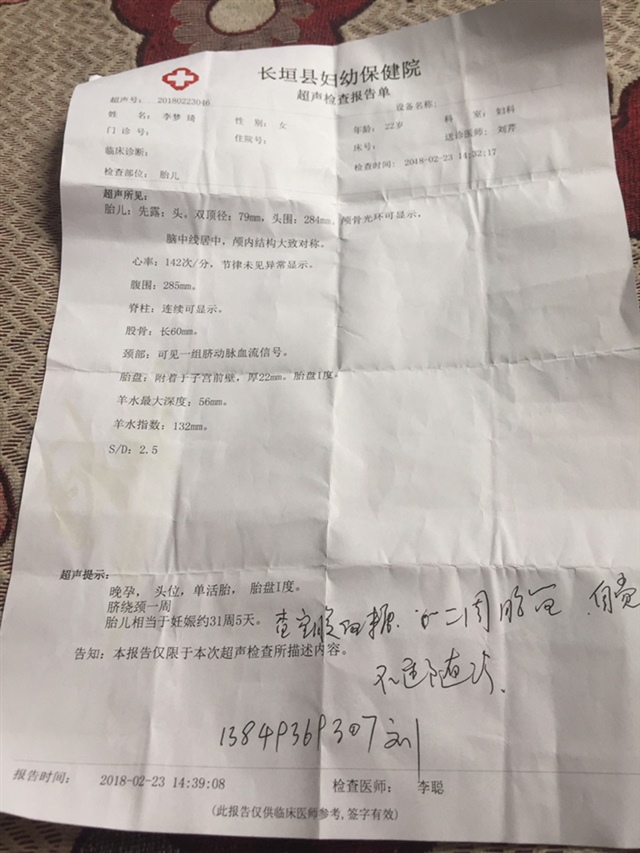 长垣县妇幼保健院
超声检查报告单
超声号： 20180223046 设备名称：
姓 名： 李梦琦 性 别：女 年龄：22岁 科 室：妇科
门诊号： 住院号： 床号： 送诊医师：刘芹
临床诊断：
检查部位：胎儿 检查时间：2018-02-23 14:32:17
超声所见：
胎儿：先露：头。双顶径：79mm，头围：284mm。颅骨光环可显示，
脑中线居中，颅内结构大致对称。
心率：142次/分，节律未见异常显示。
腹围：285mm。
脊柱：连续可显示。
股骨：长60mm。
颈部：可见一组脐动脉血流信号。
胎盘：附着于子宫前壁，厚22mm。胎盘I度。
羊水最大深度：56mm。
羊水指数：132mm。
S/D：2.5
超声提示：
晚孕， 头位，单活胎， 胎盘I度。
脐绕颈一周
胎儿相当于妊娠约31周5天。
告知：本报告仅限于本次超声检查所描述内容。
不适随诊.
13849369307刘
报告时间： 2018-02-23 14:39:08 检查医师： 李聪
(此报告仅供临床医师参考,签字有效)